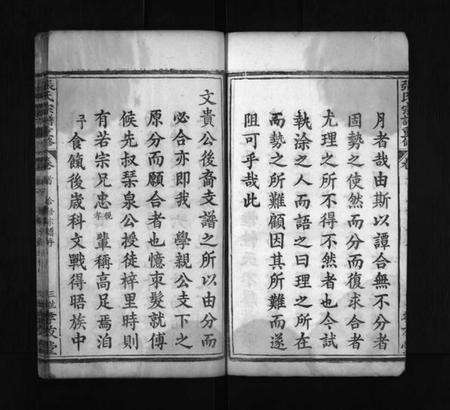 月者哉由斯以譚合無不分者
固勢之使然而分而復求合者
尤理之所不得不然者也今試
執涂之人而語之曰理之所在
而勢之所難顧因其所難而遂
阻可乎哉此
文貴公後裔支譜之所以由分而
必合亦即我 學親公支下之
原分而願合者也憶束髮就傅
候先叔琹泉公授徒梓里時則
有若宗兄忠親孝輩稱高足焉洎
子食餼後歲科文戰得晤族中